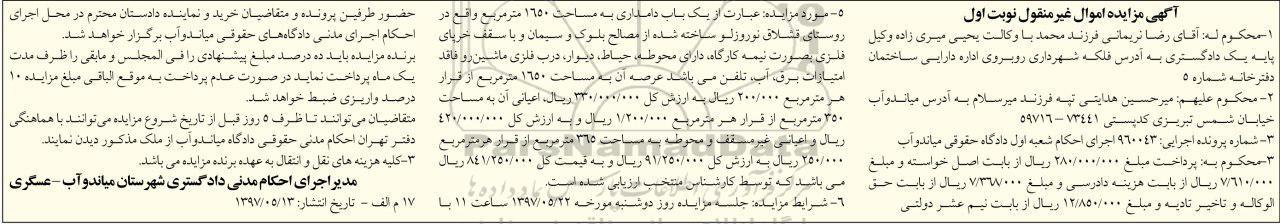 آگهی مزایده اموال غیرمنقول نوبت اول
۱-محکوم له: آقای رضا نریمانی فرزند محمد با وکالت یحیی میری زاده وکیل
پایه یک دادگستری به آدرس فلکه شهرداری روبروی اداره دارایی ساختمان
دفترخانه شماره ۵
۲- محکوم علیهم: میرحسین هدایتی تپه فرزند میرسلام به آدرس میاندوآب
خیابان شمس تبریزی کدپستی ۷۳۴۴۱ - ۵۹۷۱۶
۳-شماره پرونده اجرایی: ۹۶۰۰۴۳ اجرای احکام شعبه اول دادگاه حقوقی میاندوآب
۳-محکوم به: پرداخت مبلغ ۲۸۰/۰۰۰/۰۰۰ ریال از بابت اصل خواسته و مبلغ
۷/۶۱۰/۰۰۰ ریال از بابت هزینه دادرسی و مبلغ ۷/۳۶۸/۰۰۰ ریال از بابت حق
الوکاله و تاخیر تادیه و مبلغ ۱۲/۸۵۰/۰۰۰ ریال از بابت نیم عشر دولتی
۵- مورد مزایده: عبارت از یک باب دامداری به مساحت ۱۶۵۰ مترمربع واقع در
روستای قشلاق نوروزلو ساخته شده از مصالح بلوک و سیمان و با سقف خرپای
فلزی بصورت نیمه کارگاه، دارای محوطه، حیاط، دیوار، درب فلزی ماشین‌رو فاقد
امتیازات برق، آب، تلفن می باشد عرصه آن به مساحت ۱۶۵۰ مترمربع از قرار
هر مترمربع ۲۰۰/۰۰۰ ریال به ارزش کل ۳۳۰/۰۰۰/۰۰۰ ریال، اعیانی آن به مساحت
۳۵۰ مترمربع از قرار هر مترمربع ۱/۲۰۰/۰۰۰ ریال و به ارزش کل ۴۲۰/۰۰۰/۰۰۰
ریال و اعیانی غیر مسقف و محوطه به مساحت ۳۶۵ مترمربع از قرار هر مترمربع
۲۵۰/۰۰۰ ریال به ارزش کل ۹۱/۲۵۰/۰۰۰ ریال و به قیمت کل ۸۴۱/۲۵۰/۰۰۰ ریال
می باشد که توسط کارشناس منتخب ارزیابی شده است.
۶- شرایط مزایده: جلسه مزایده روز دوشنبه مورخه ۱۳۹۷/۰۵/۲۲ ساعت ۱۱ با
حضور طرفین پرونده و متقاضیان خرید و نماینده دادستان محترم در محل اجرای
احکام اجرای مدنی دادگاه‌های حقوقی میاندوآب برگزار خواهد شد.
برنده مزایده باید ده درصد مبلغ پیشنهادی را فی المجلس و مابقی را ظرف مدت
یک ماه پرداخت نماید در صورت عدم پرداخت به موقع الباقی مبلغ مزایده ۱۰
درصد واریزی ضبط خواهد شد.
متقاضیان می‌توانند تا ظرف ۵ روز قبل از تاریخ شروع مزایده می‌توانند با هماهنگی
دفتر تهران احکام مدنی حقوقی دادگاه میاندوآب از ملک مذکور دیدن نمایند.
۳-کلیه هزینه های نقل و انتقال به عهده برنده مزایده می باشد.
مدیر اجرای احکام مدنی دادگستری شهرستان میاندوآب - عسگری
۱۷ م الف - تاریخ انتشار: ۱۳۹۷/۰۵/۱۳
ParsNamadData